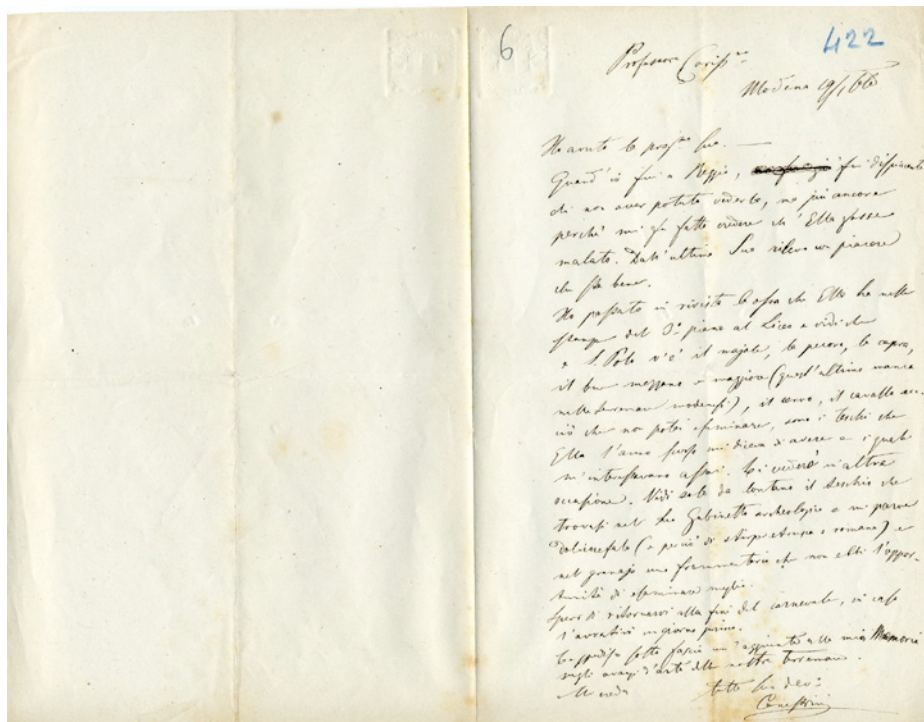 6
422
Professore Cariss.mo
Modena 19/1 66
Ho avuto la preg.ma Sua. —
Quand' io fui a Reggio, fui dispiacente
di non aver potuto vederla, ma più ancora
perchè mi fu fatto credere ch' Ella fosse
malato. Dall' ultima Sua rilevo con piacere
che sta bene.
Ho passato in rivista le ossa che Ella ha nelle
stanze del 3° piano al Liceo e vidi che
a S. Polo v'è il majale, la pecora, la capra,
il bue mezzano e maggiore (quest' ultimo manca
nelle terremare modenesi), il cervo, il cavallo
ciò che non potei esaminare, sono i teschi che
Ella l'anno scorso mi diceva di avere e i quali
m' interessavano assai. Li vedrò in altra
occasione. Vidi solo da lontano il teschio che
trovasi nel Suo Gabinetto archeologico e mi parve
dolicocefalo (e perciò di stirpe etrusca o romana) e
nel granajo una frammentaria che non ebbi l'oppor-
tunità di esaminare meglio.
Spero di ritornarvi alla fine del carnevale, in caso
l' avvertirò un giorno prima.
Le spedisco sotto fascia un' aggiunta alla mia Memoria
sugli avanzi d'arte delle nostre terremare.
Mi creda
tutto Suo dev.o
Canestrini